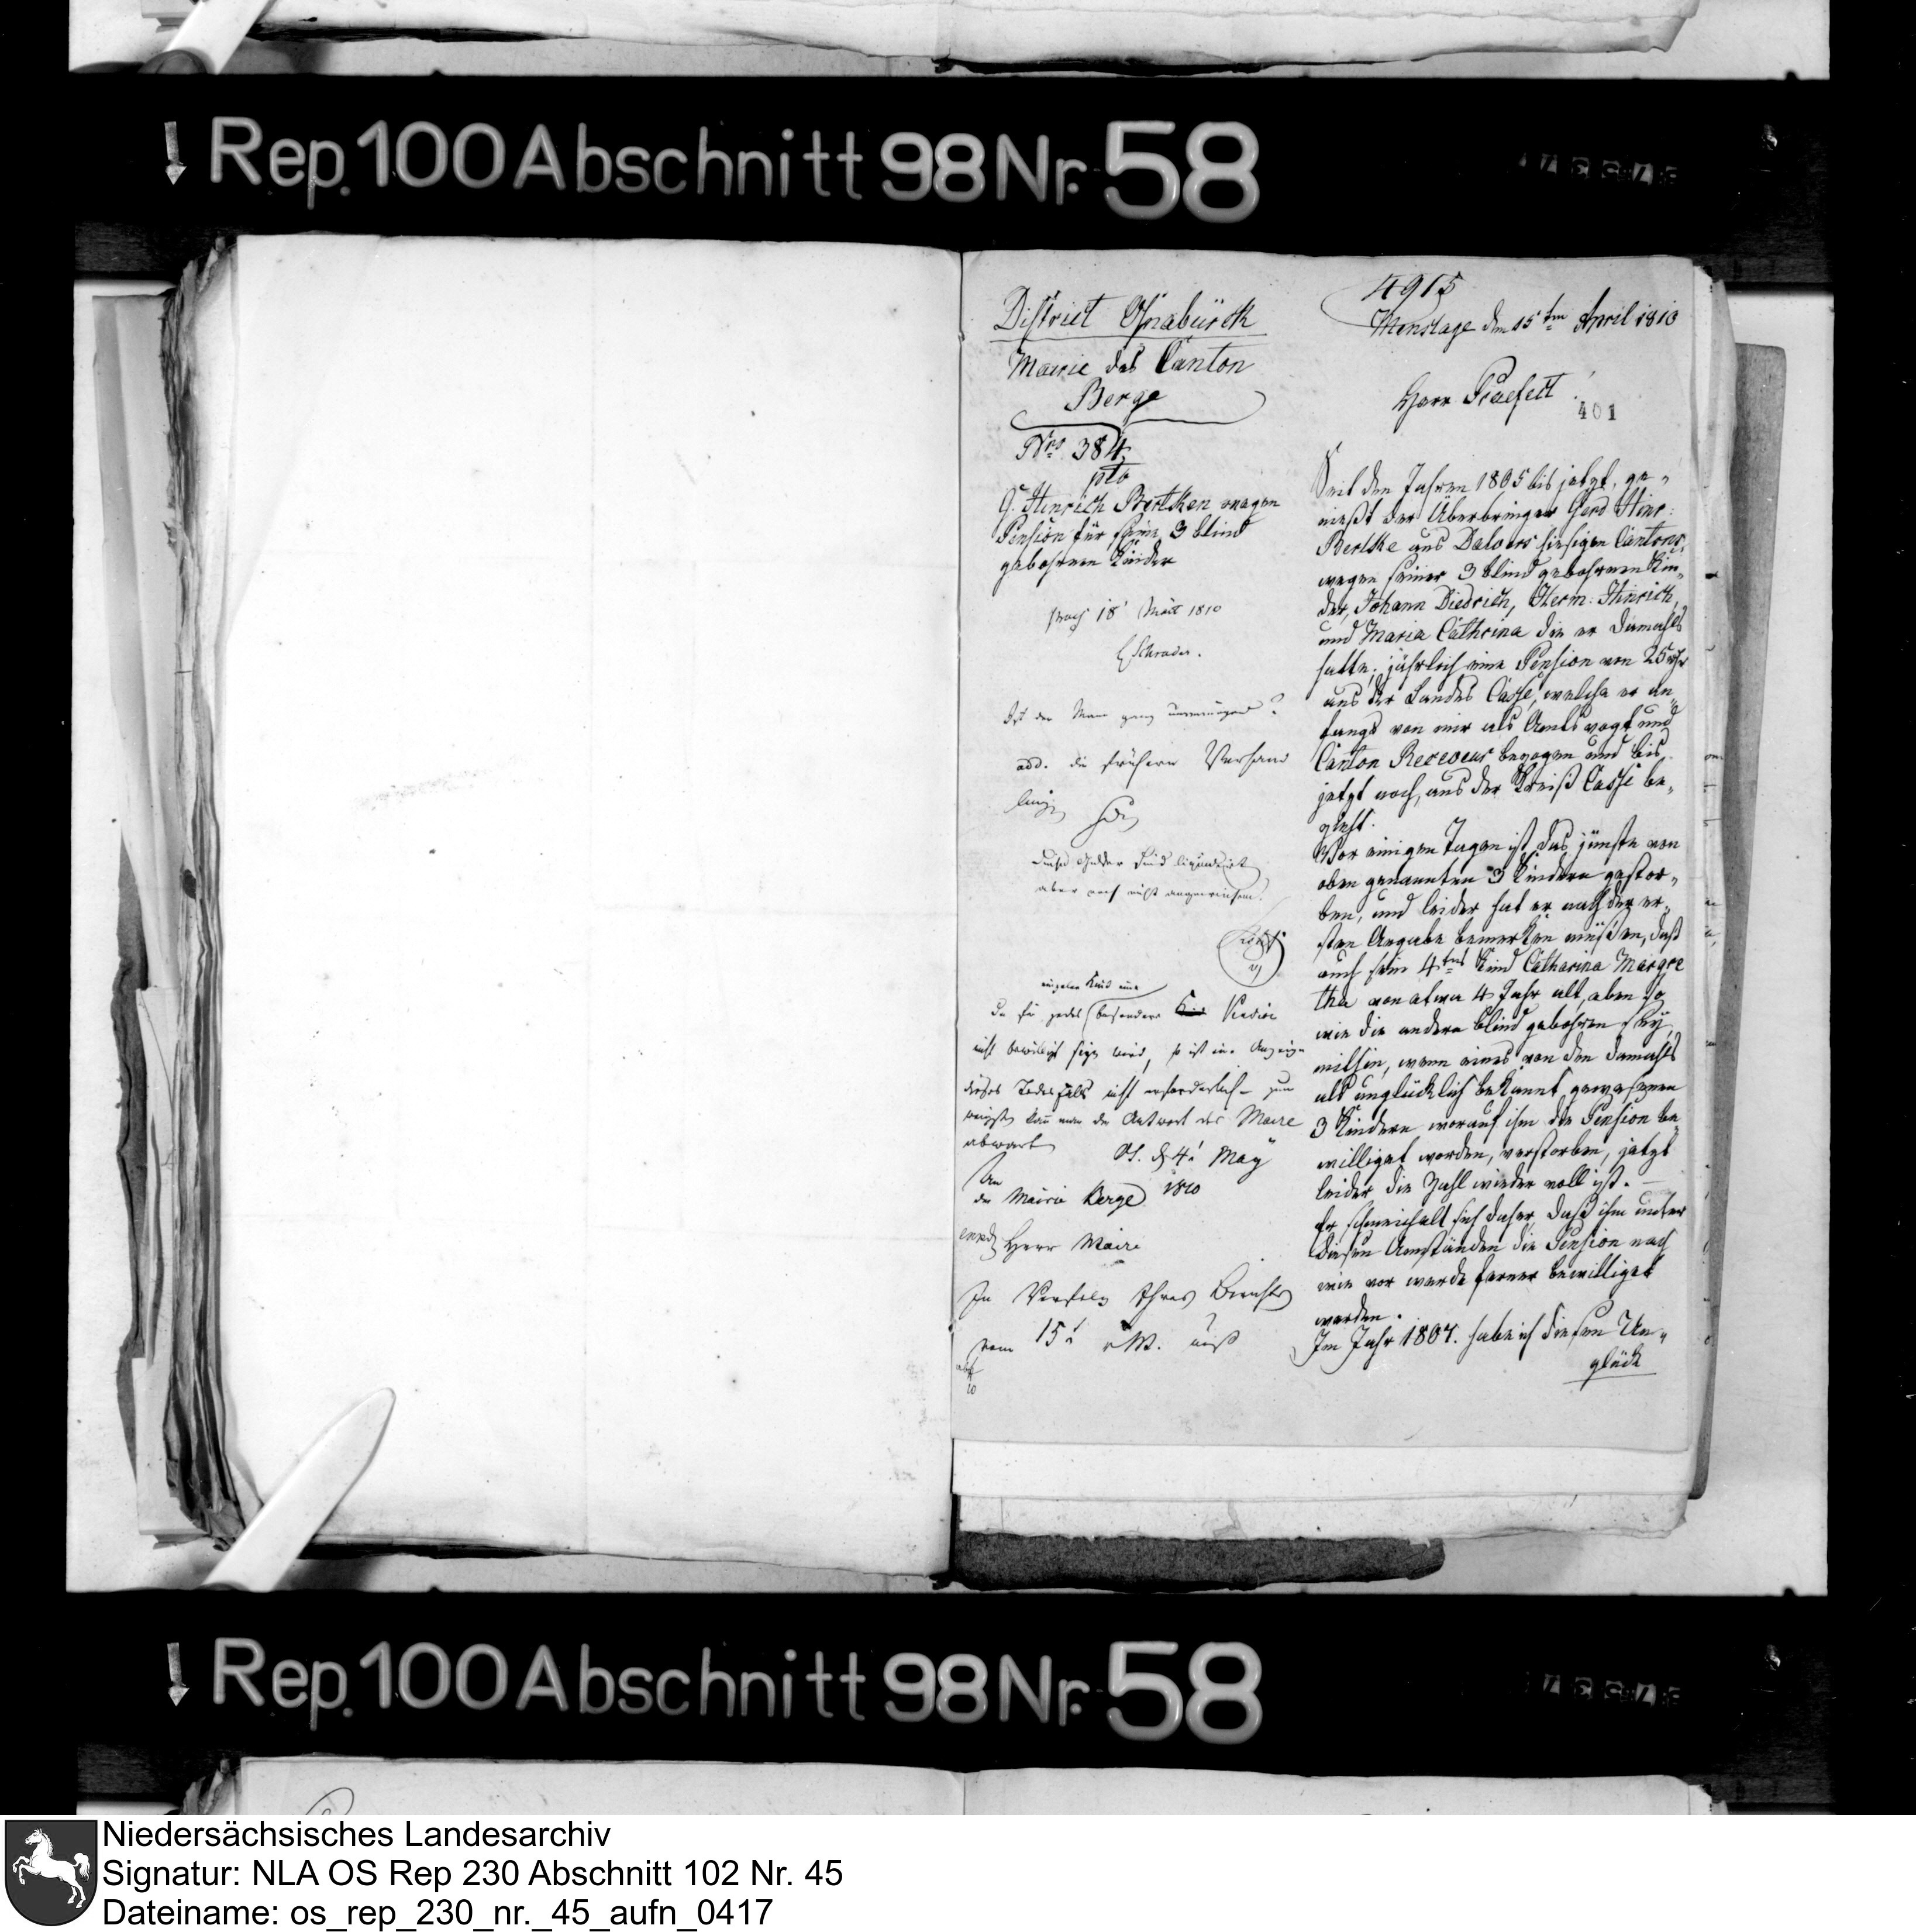 Rep. 100 Abschnitt 98 Nr. 58
District Oßnabürck
Mairie des Canton
Berge
Nro 384
pto
G. Hinrich Bertken wegen
Pension für seine 3 blind
gebohrnen Kinder
18 1810
Schrader.
Ist der Mann ganz unvermögend?
add. die frühern Verhand
lungen
Diese Gelder sind liquidirt
aber noch nicht angewiesen.
einzelne Kind eine
da für jedes besondere
nicht bewilligt seyn wird, so ist eine Anzeige
dieses Todesfalls nicht erforderlich
kann man die Antwort des Maire
abwarten
Os. d 4t May
1810
An
die Mairie Berge
Herr Maire
In Verfolg Ihres Berichts
vom 15t v. M. muß
4915
Menslage den 15ten April 1810
Herr Praefect!
401
Seit den Jahren 1805 bis jetzt, ge-
nießt der Überbringer Gerd Hinr:
Bertke aus Dalvers hiesigen Cantons,
wegen seiner 3 blind gebohrnen Kin-
der, Johann Diedrich, Herm: Hinrich,
und Maria Cathrina die er damahls
hatte, jährlich eine Pension von 25 rthr
aus der Landes Casse, welche er an
fangs von mir als Amtsvogt und
Canton Receveur bezogen und bis
jetzt noch, aus der Kreiß Casse be-
zieht.
Vor einigen Tagen ist das jünste von
oben genannten 3 Kindern gestor-
ben, und leider hat er nach der er-
sten Angabe bemerken müßen, daß
auch sein 4tes Kind Catharina Margre
tha von etwa 4 Jahr alt, eben so
wie die andern blind gebohren sey,
mithin, wenn eines von den damahls
als unglücklich bekannt gewesenen
3 Kindern worauf ihm die Pension be
williget worden, verstorben, jetzt
leider die Zahl wieder voll ist. —
Er schmeichelt sich daher, daß ihm unter
diesen Umständen die Pension nach
wie vor werde ferner bewilliget
werden.
Im Jahr 1807. habe ich diesen Un-
glück
Rep. 100 Abschnitt 98 Nr. 58
Niedersächsisches Landesarchiv
Signatur: NLA OS Rep 230 Abschnitt 102 Nr. 45
Dateiname: os_rep_230_nr._45_aufn_0417